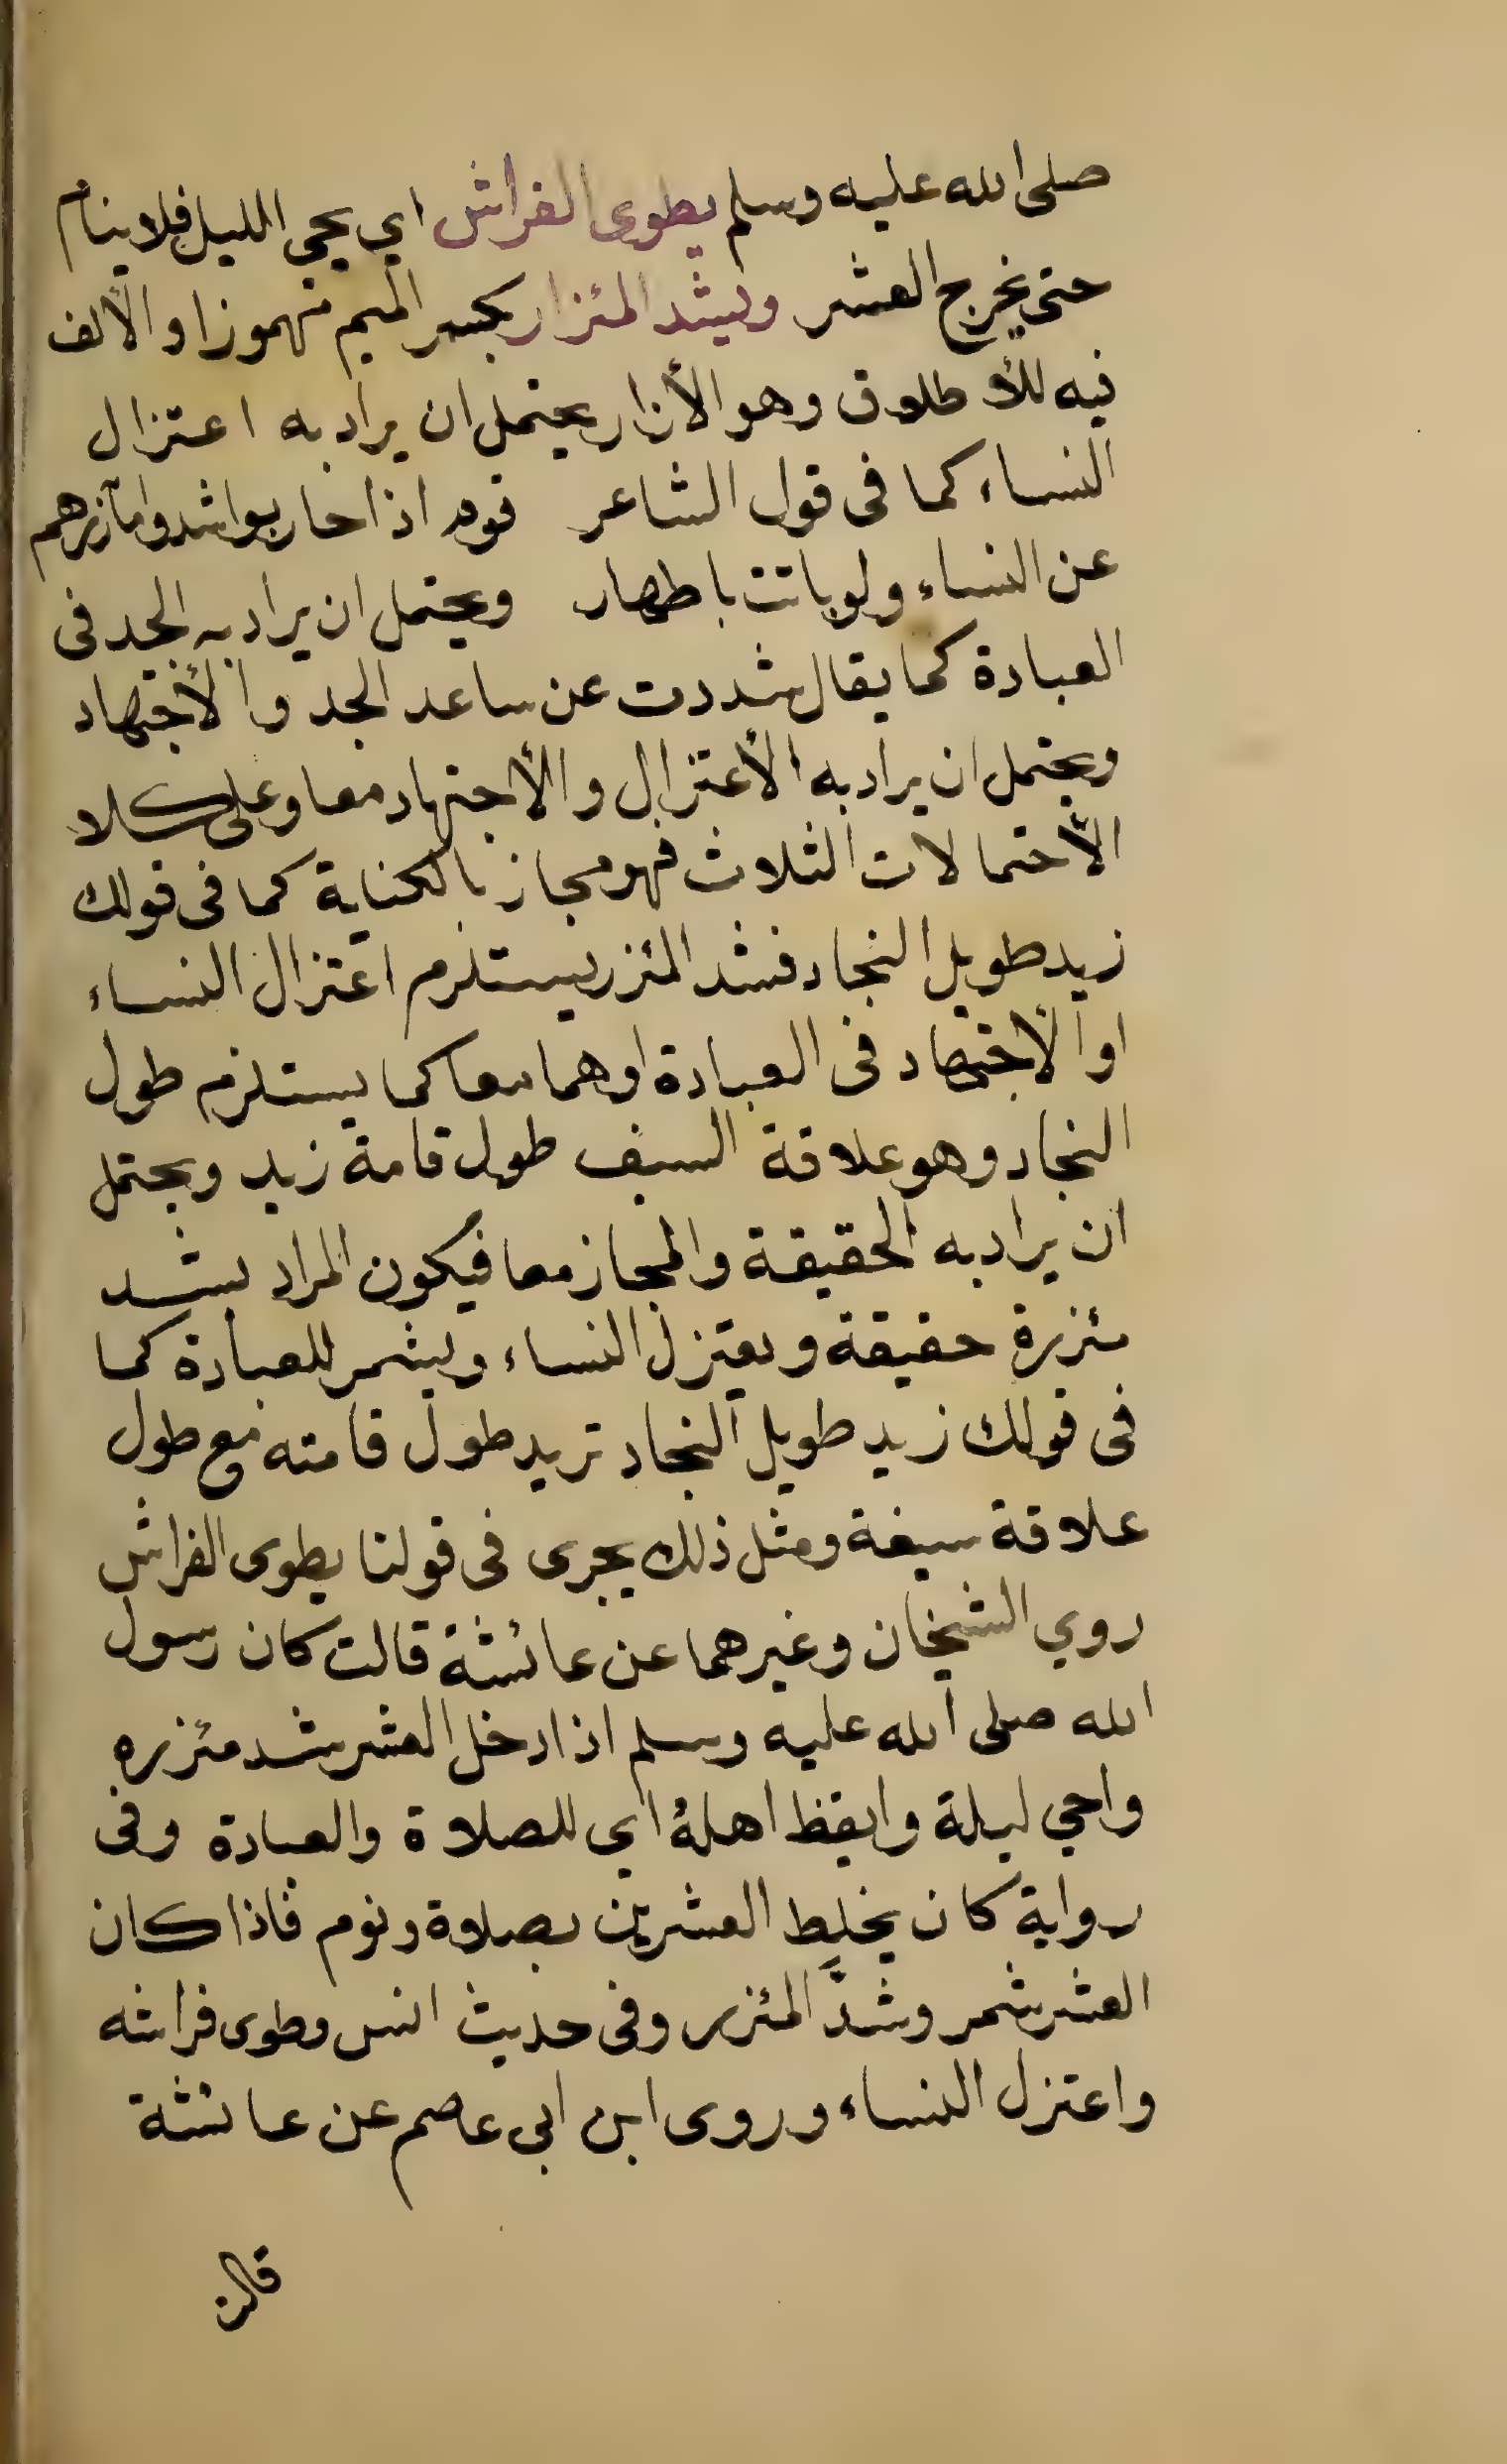 صلى الله عليه وسلم يطوى الفراش اي يحي الليل فلا ينام
حتى يخرج العشر ويشد المئزار بكسر الميم مهموزا والألف
فيه للأطلاق وهو الأزار يحتمل ان يراد به اعتزال
النساء كما فى قول الشاعر قوم اذا حاربوا شدوا مآزرهم
عن النساء ولو باتت باطهار ويحتمل ان يراد به الجد فى
العبادة كما يقال شددت عن ساعد الجد والأجتهاد
ويحتمل ان يراد به الأعتزال والأجتهاد معا وعلى كلا
الأحتمالات الثلاث فهو مجاز بالكناية كما فى قولك
زيد طويل النجاد فشد المئزر يستلزم اعتزال النساء
او الأجتهاد فى العبادة او هما معا كما يستلزم طول
النجاد وهو علاقة السيف طول قامة زيد ويحتمل
ان يراد به الحقيقة والمجاز معا فيكون المراد يشد
مئزرة حقيقة ويعتزل النساء ويشمر للعبادة كما
فى قولك زيد طويل النجاد تريد طول قامته مع طول
علاقة سيفة ومثل ذلك يجرى فى قولنا يطوى الفراش
روي الشيخان وغيرهما عن عائشة قالت كان رسول
الله صلى الله عليه وسلم اذا دخل العشر شد مئزره
واحي ليلة وايقظ اهلهُ اي للصلاة والعبادة وفى
رواية كان يخلط العشرين بصلاة ونوم فاذا كان
العشر شمر وشدَّ المئزر وفى حديث انس وطوى فراشه
واعتزل النساء وروى ابن ابى عاصم عن عائشة
قالت